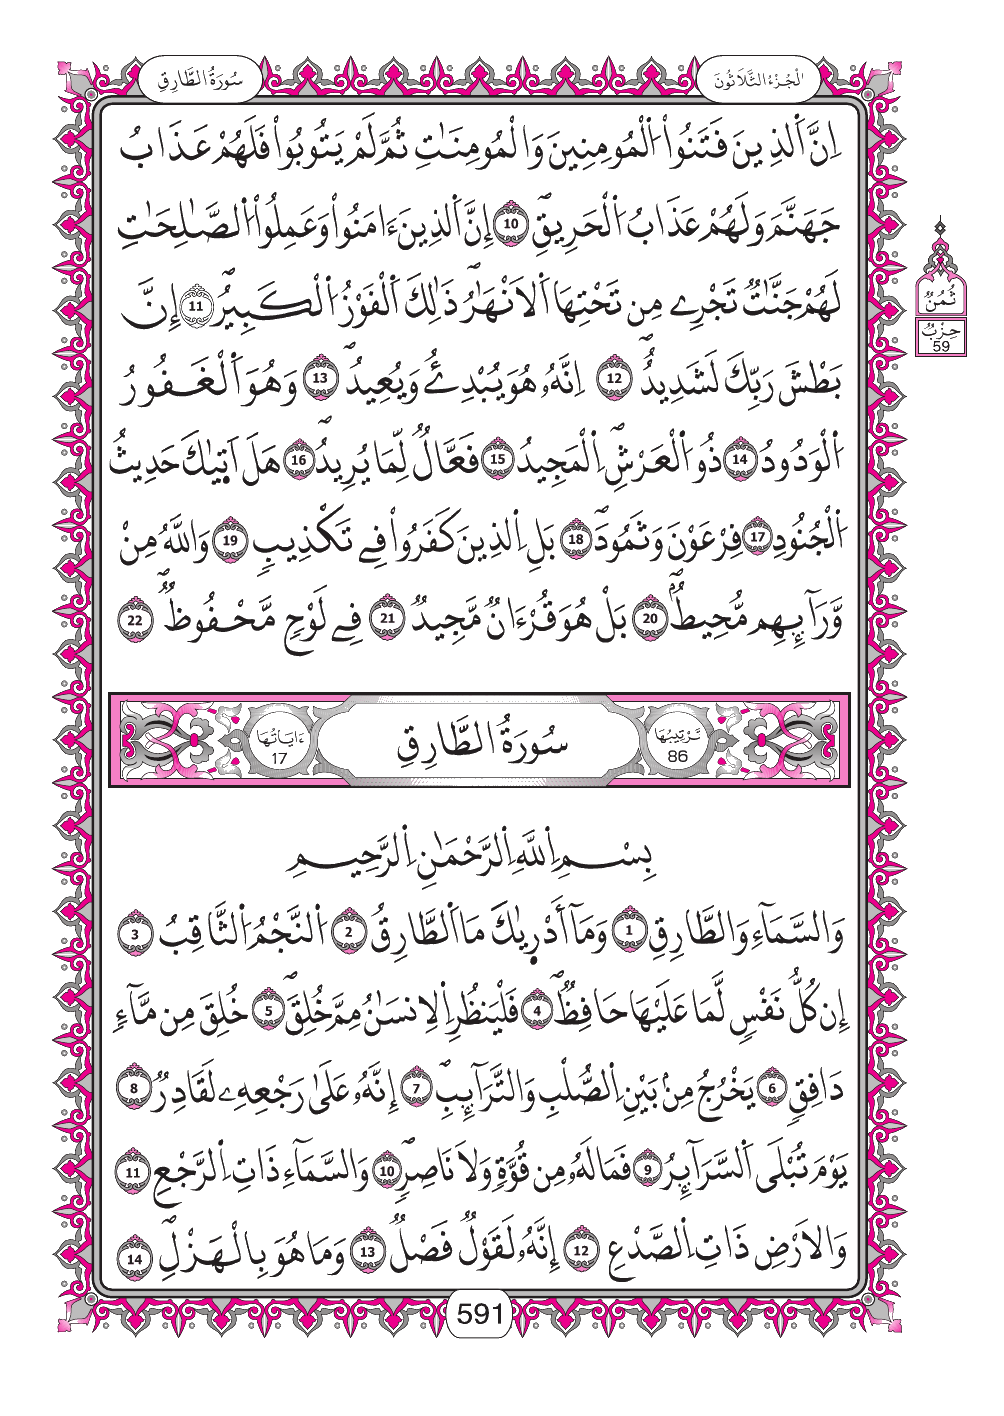 سُورَةُ الطَّارِقِ
الْجُزْءُ الثَّلَاثُونَ
اِنَّ اَ۬لذِينَ فَتَنُواْ اُ۬لْمُومِنِينَ وَالْمُومِنَٰتِ ثُمَّ لَمْ يَتُوبُواْ فَلَهُمْ عَذَابُ
جَهَنَّمَ وَلَهُمْ عَذَابُ اُ۬لْحَرِيقِۖ 10 إِنَّ اَ۬لذِينَ ءَامَنُواْ وَعَمِلُواْ اُ۬لصَّٰلِحَٰتِ
لَهُمْ جَنَّٰتٞ تَجْرِے مِن تَحْتِهَا اَ۬لَانْهَٰرُۖ ذَٰلِكَ اَ۬لْفَوْزُ اُ۬لْكَبِيرُۖ 11 إِنَّ
بَطْشَ رَبِّكَ لَشَدِيدٌۖ 12 اِنَّهُۥ هُوَ يُبْدِۓُ وَيُعِيدُۖ 13 وَهُوَ اَ۬لْغَفُورُ
اُ۬لْوَدُودُ 14 ذُو اُ۬لْعَرْشِۖ اِ۬لْمَجِيدُ 15 فَعَّالٞ لِّمَا يُرِيدُۖ 16 هَلَ اَت۪يٰكَ حَدِيثُ
اُ۬لْجُنُودِ 17 فِرْعَوْنَ وَثَمُودَۖ 18 بَلِ اِ۬لذِينَ كَفَرُواْ فِے تَكْذِيبٖ 19 وَاللَّهُ مِنْ
وَّرَآئِهِم مُّحِيطُۢۖ 20 بَلْ هُوَ قُرْءَانٞ مَّجِيدٞ 21 فِے لَوْحٖ مَّحْفُوظٞۖ 22
ثُمُنُ
حِزْبُ
59
تَرْتِيبُهَا
86
سُورَةُ الطَّارِقِ
ءَايَاتُهَا
17
بِسْمِ اِ۬للَّهِ اِ۬لرَّحْمَٰنِ اِ۬لرَّحِيمِ
وَالسَّمَآءِ وَالطَّارِقِ 1 وَمَآ أَدْر۪يٰكَ مَا اَ۬لطَّارِقُ 2 اُ۬لنَّجْمُ اُ۬لثَّاقِبُ 3
إِن كُلُّ نَفْسٖ لَّمَا عَلَيْهَا حَافِظٞۖ 4 فَلْيَنظُرِ اِ۬لِانسَٰنُ مِمَّ خُلِقَۖ 5 خُلِقَ مِن مَّآءٖ
دَافِقٖ 6 يَخْرُجُ مِنۢ بَيْنِ اِ۬لصُّلْبِ وَالتَّرَآئِبِۖ 7 إِنَّهُۥ عَلَىٰ رَجْعِهِۦ لَقَادِرٞ 8
يَوْمَ تُبْلَى اَ۬لسَّرَآئِرُ 9 فَمَا لَهُۥ مِن قُوَّةٖ وَلَا نَاصِرٖۖ 10 وَالسَّمَآءِ ذَاتِ اِ۬لرَّجْعِ 11
وَالَارْضِ ذَاتِ اِ۬لصَّدْعِ 12 إِنَّهُۥ لَقَوْلٞ فَصْلٞ 13 وَمَا هُوَ بِالْهَزْلِۖ 14
591